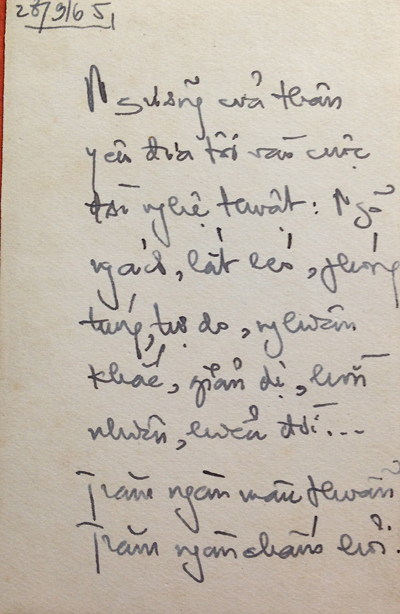 28/9/65
Ngưỡng cửa thân
yêu đưa tôi vào cuộc
đời nghệ thuật: Ngõ
ngách, lắt léo, phóng
túng, tự do, nghiêm
khắc, giản dị, hồn
nhiên, hươu đời...
Trăm ngàn mâu thuẫn
Trăm ngàn chấm hỏi.